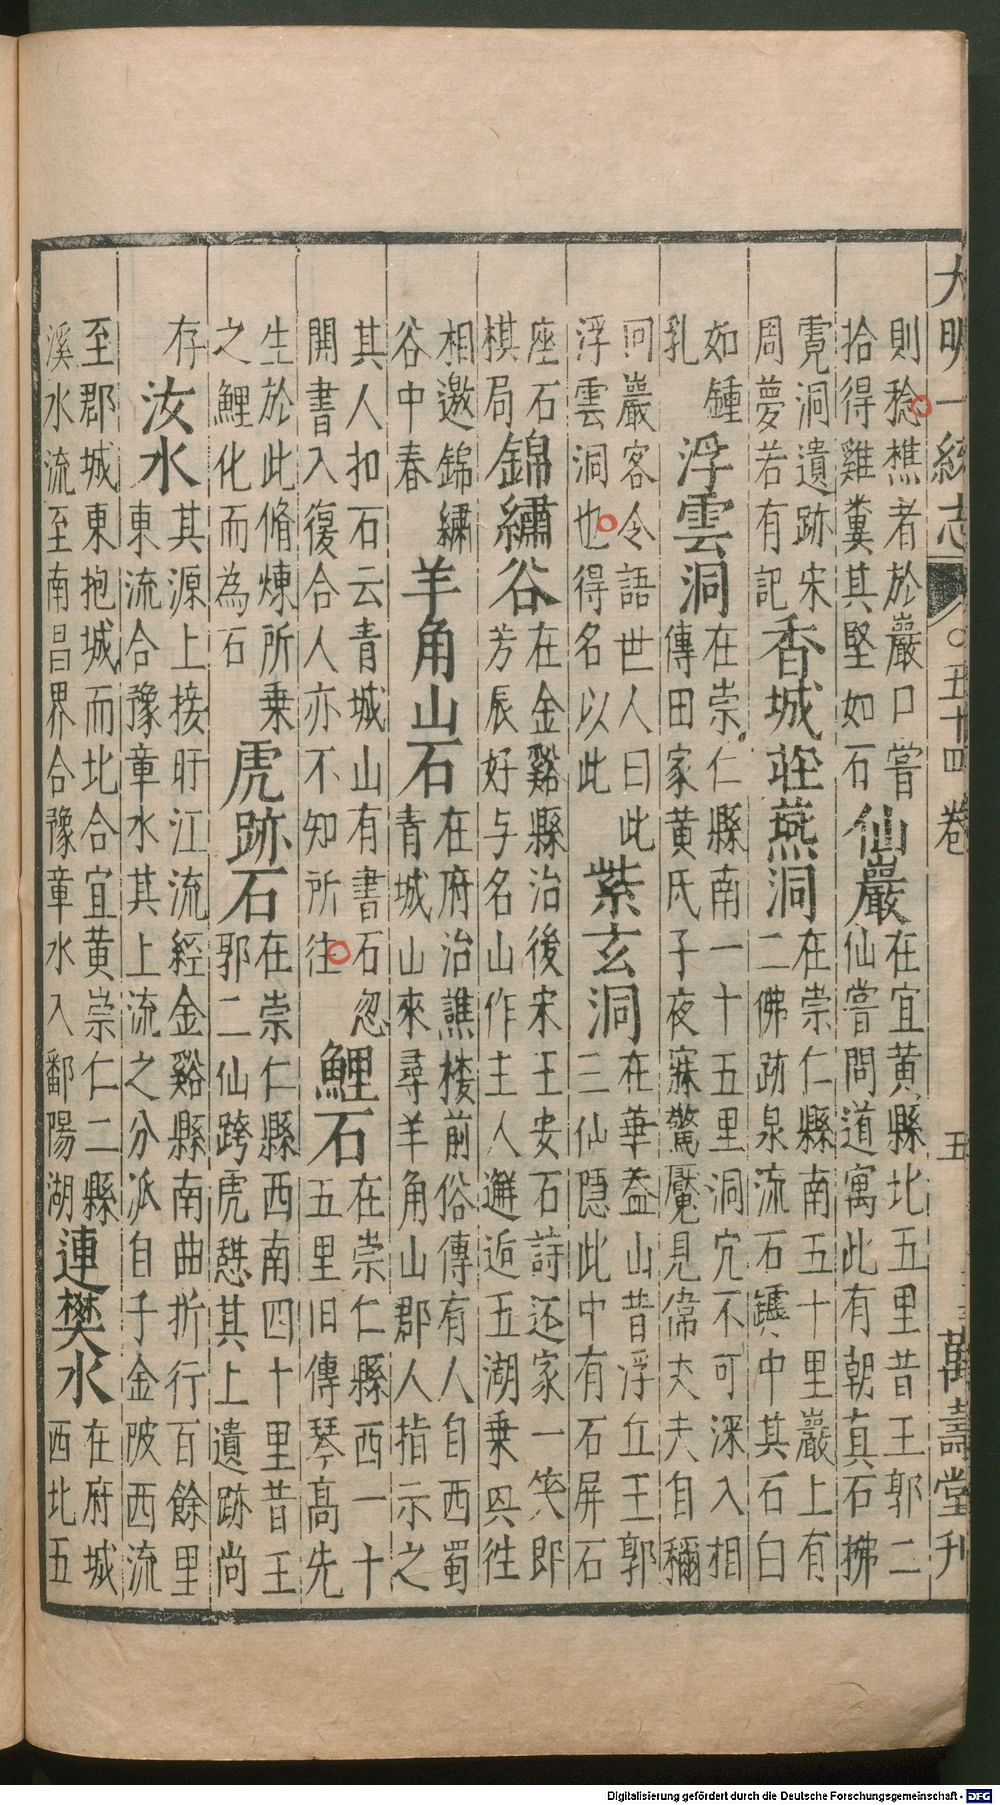 大明一統志 五十四卷 五 萬壽堂刊
則稔樵者於巖口嘗
拾得雞糞其堅如石
仙巖
在宜黃縣北五里昔王郭二
仙嘗問道寓此有朝真石拂
霓洞遺跡宋
周夢若有記
香城莊燕洞
在崇仁縣南五十里巖上有
二佛跡泉流石罅中其石白
如鍾
乳
浮雲洞
在崇仁縣南一十五里洞穴不可深入相
傳田家黃氏子夜寐驚魘見偉丈夫自稱
同巖客令語世人曰此
浮雲洞也得名以此
紫玄洞
在華盖山昔浮丘王郭
三仙隱此中有石屏石
座石
棋局
錦繡谷
在金谿縣治後宋王安石詩还家一笑即
芳辰好与名山作主人邂逅五湖乗𠔃徃
相邀錦繡
谷中春
羊角山石
在府治譙楼前俗傳有人自西蜀
青城山來尋羊角山郡人指示之
其人扣石云青城山有書石忽
開書入復合人亦不知所往
鯉石
在崇仁縣西一十
五里旧傳琴高先
生於此脩煉所乗
之鯉化而為石
虎跡石
在崇仁縣西南四十里昔王
郭二仙跨虎憇其上遺跡尚
存
汝水
其源上接盱江流經金谿縣南曲折行百餘里
東流合豫章水其上流之分派自千金陂西流
至郡城東抱城而北合宜黃崇仁二縣
溪水流至南昌界合豫章水入鄱陽湖
連樊水
在府城
西北五
Digitalisierung gefördert durch die Deutsche Forschungsgemeinschaft - DFG